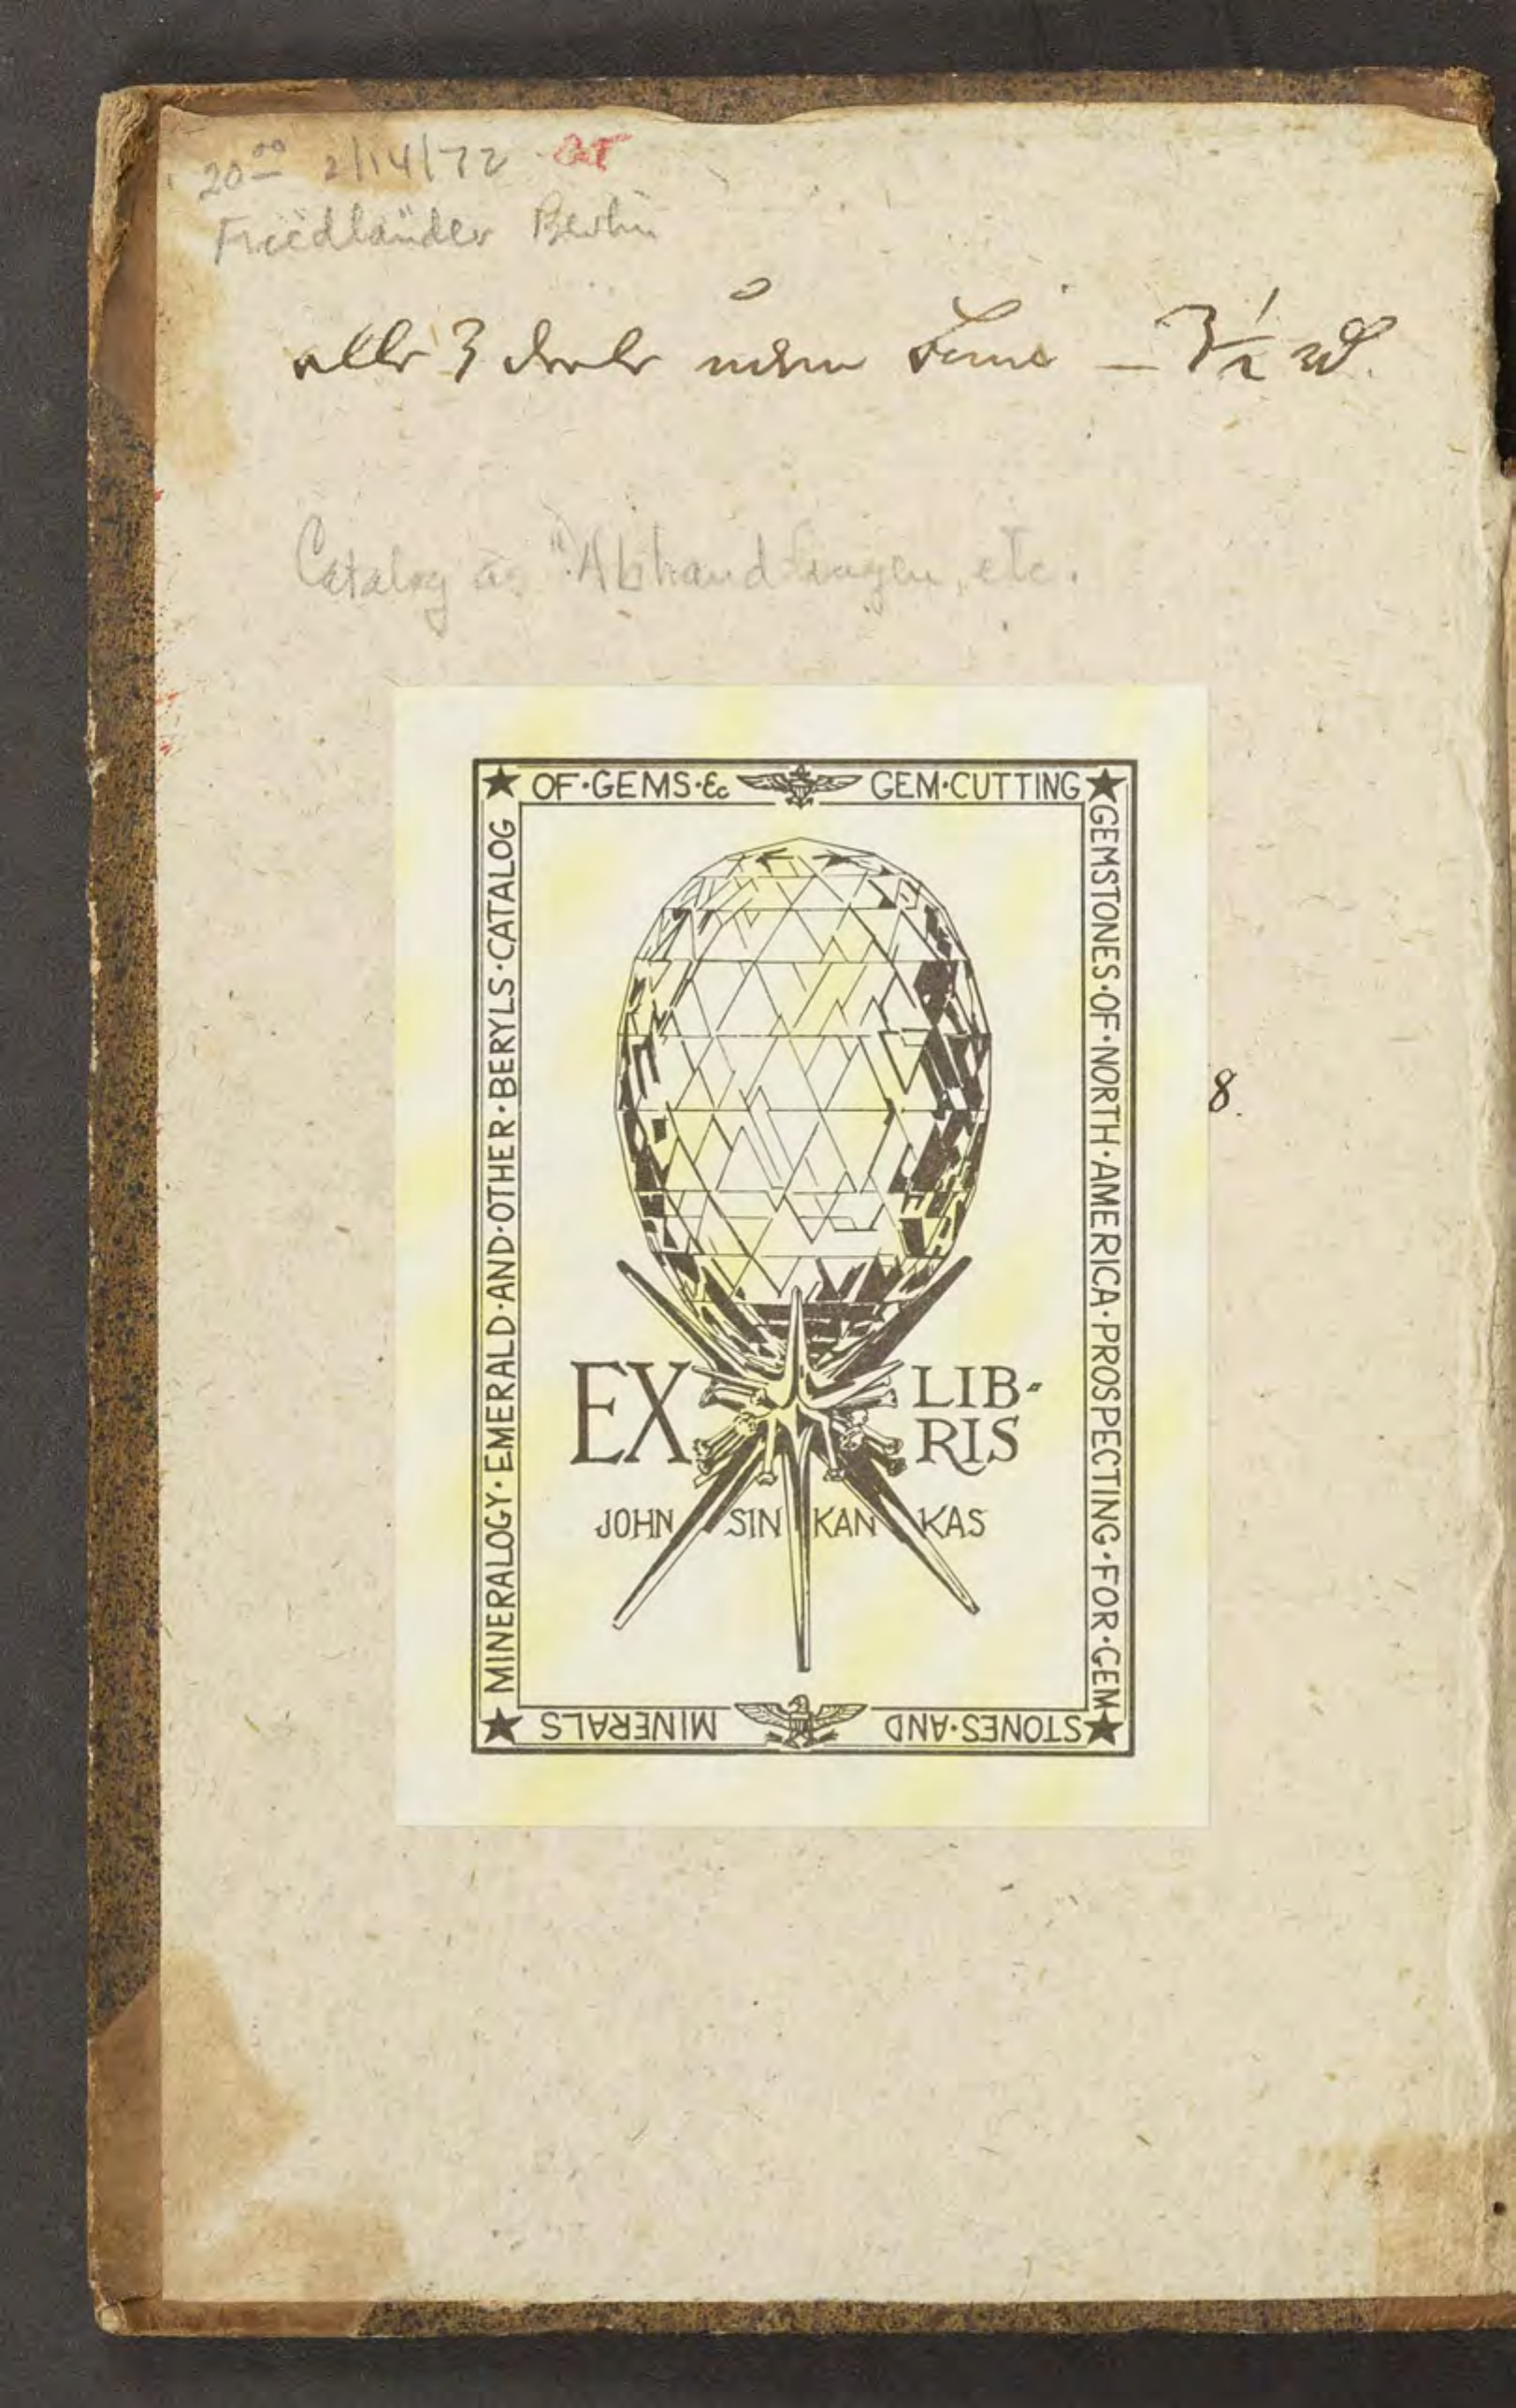 20⁰⁰ 2/14/72
Friedländer Berlin
alle 3 — 3 1/2
Catalog as "Abhandlungen, etc.
★ OF·GEMS·& GEM·CUTTING ★
GEMSTONES·OF·NORTH·AMERICA·PROSPECTING·FOR·GEM
★ STONES·AND MINERALS ★
MINERALOGY·EMERALD·AND·OTHER·BERYLS·CATALOG
8.
EX LIB-
RIS
JOHN SIN KAN KAS